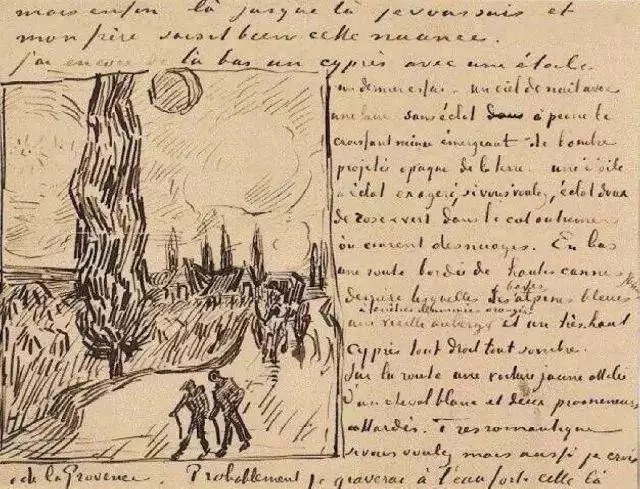 mais enfin là jusque là je vous sais et
mon frère saisit bien cette nuance.
J'ai encore de là bas un cyprès avec une étoile
un dernier essai – un ciel de nuit avec
une lune sans éclat à peine le
croissant mince émergeant de l'ombre
projetée opaque de la terre – une étoile
à éclat exagéré, si vous voulez, éclat doux
de rose & vert dans le ciel outremer
où courent des nuages. En bas
une route bordée de hautes cannes
derrière lesquelles les basses alpines bleues
à fenêtres illuminées orangées
une vieille auberge et un très haut
cyprès tout droit tout sombre.
Sur la route une voiture jaune attelée
d'un cheval blanc et deux promeneurs
attardés. Très romantique
si vous voulez mais aussi je crois
de la Provence. Probablement je graverai à l'eau forte celle là